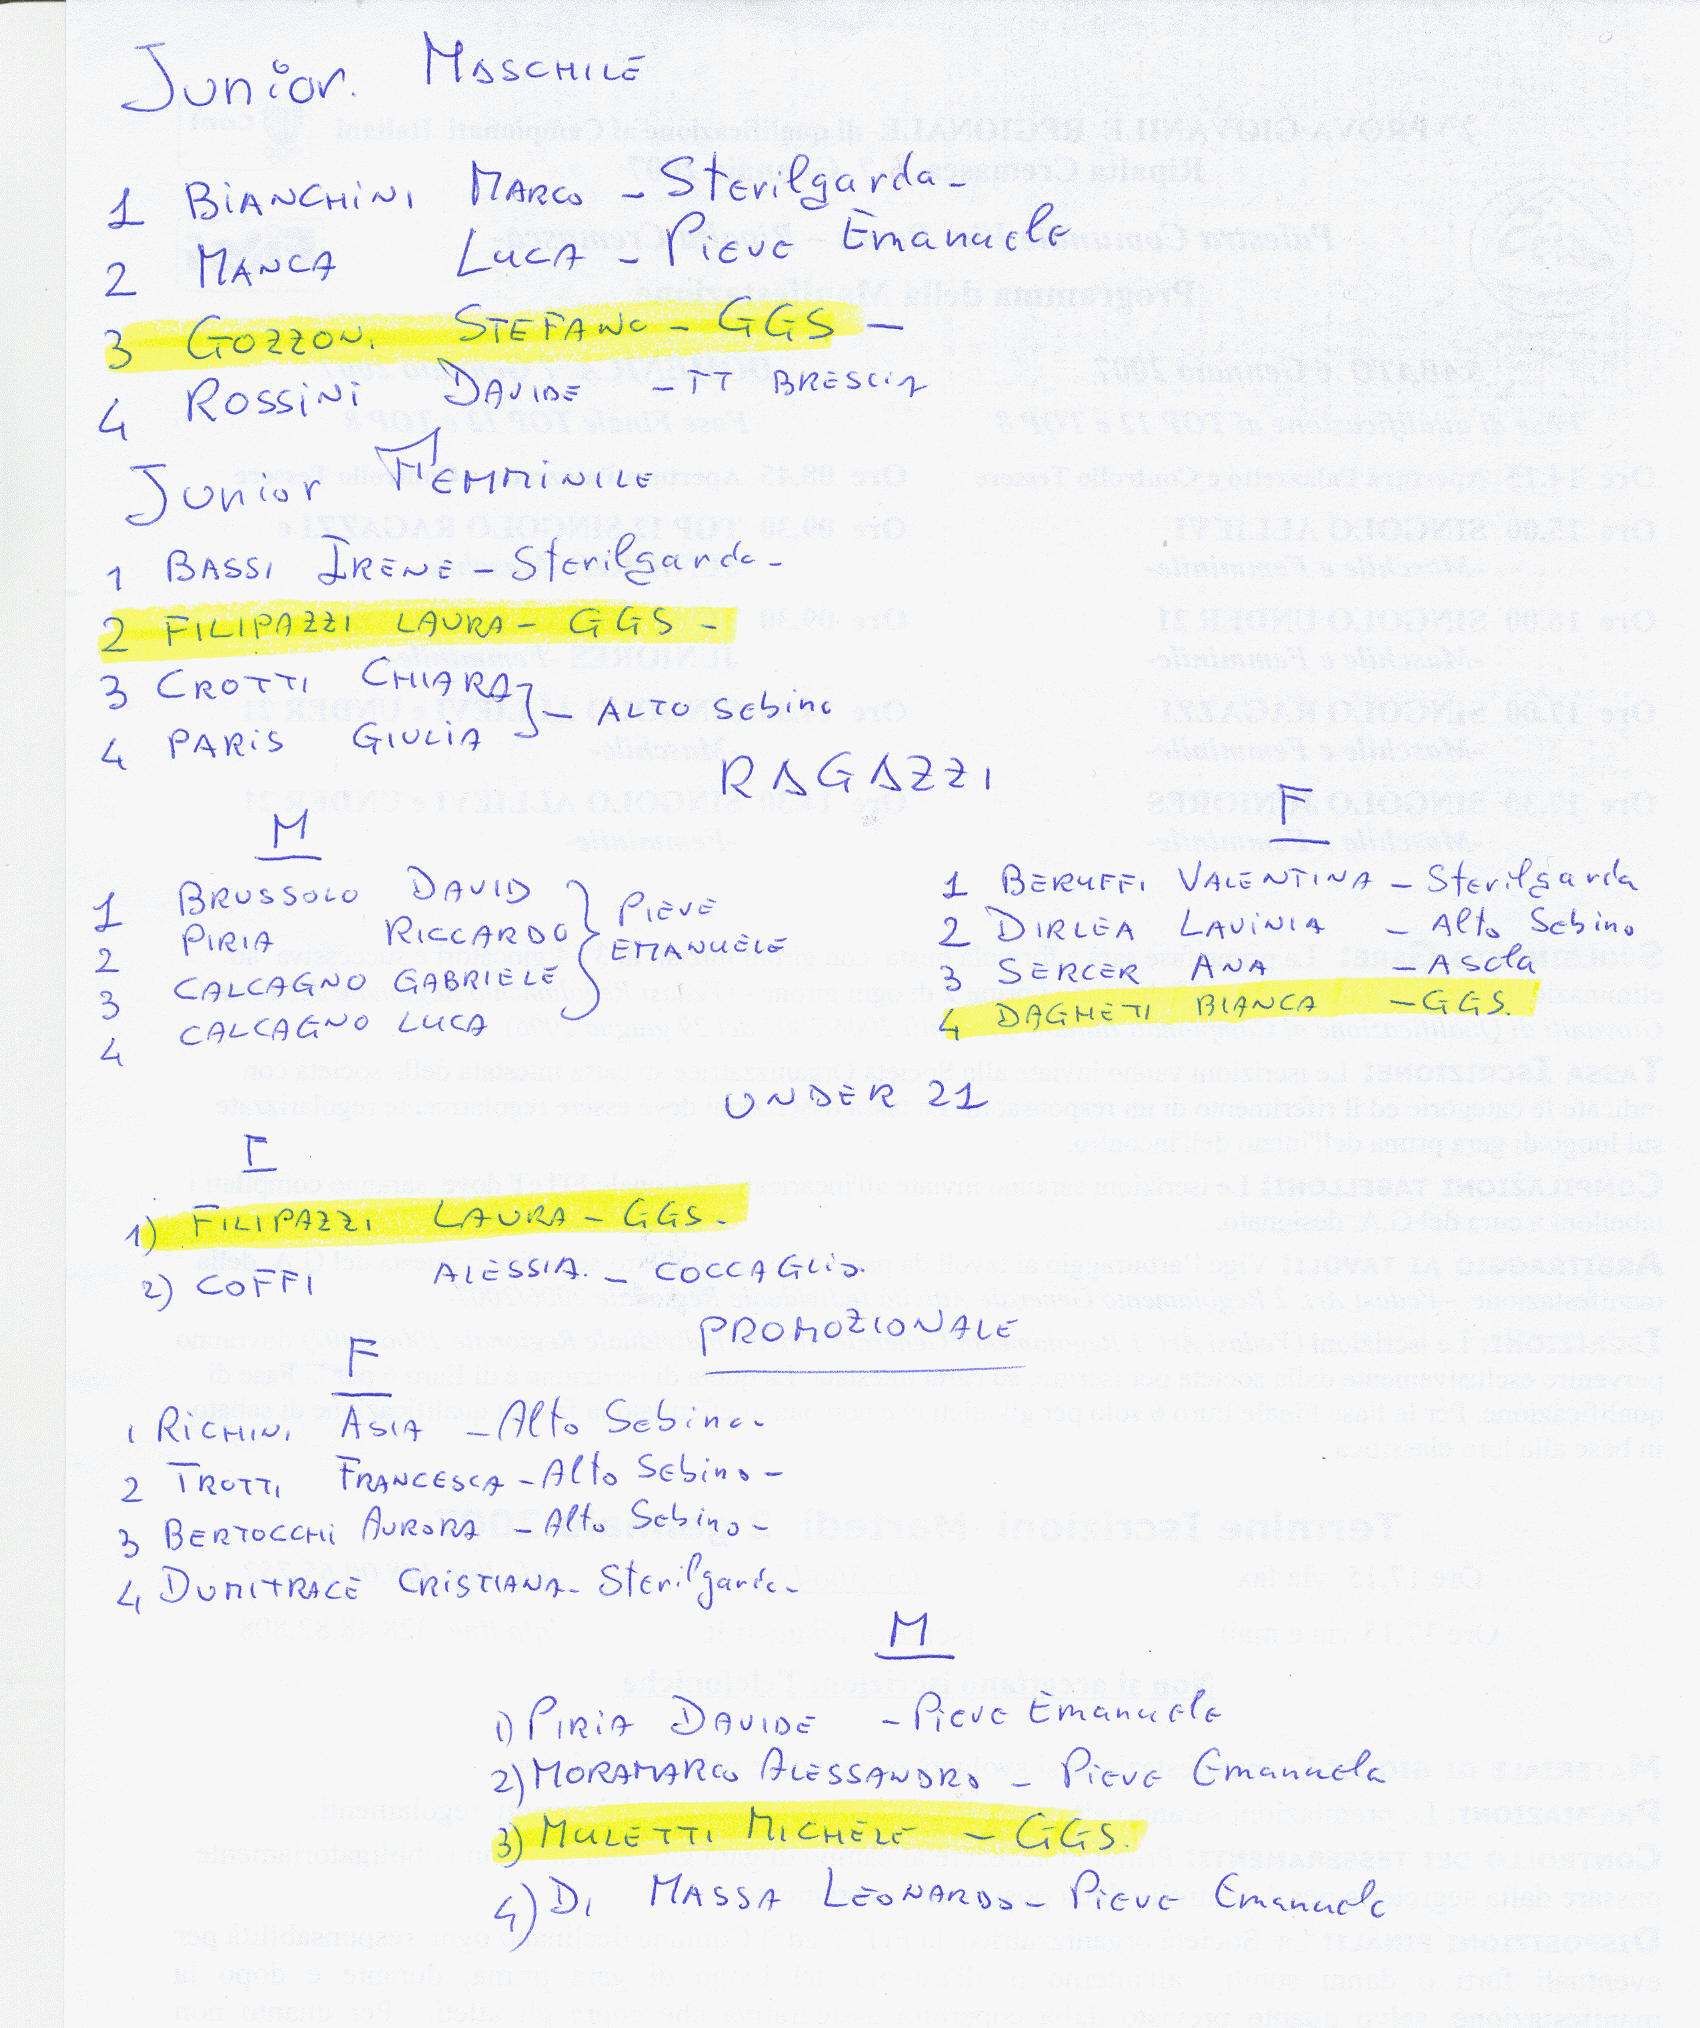 Junior. MASCHILE
1 BIANCHINI MARCO - Sterilgarda -
2 MANCA LUCA - PIEVE Emanuele
3 GOZZONI STEFANO - GGS -
4 ROSSINI DAVIDE - TT BRESCIA
Junior FEMMINILE
1 BASSI IRENE - Sterilgarda -
2 FILIPAZZI LAURA - GGS -
3 CROTTI CHIARA
4 PARIS GIULIA } - ALTO Sebino
RAGAZZI
M
1 BRUSSOLO DAVID
2 PIRIA RICCARDO
3 CALCAGNO GABRIELE
4 CALCAGNO LUCA
} PIEVE
EMANUELE
F
1 BERUFFI VALENTINA - Sterilgarda
2 DIRLEA LAVINIA - Alto Sebino
3 SERCER ANA - Asola
4 DAGHETI BIANCA - GGS.
UNDER 21
F
1) FILIPAZZI LAURA - GGS.
2) COFFI ALESSIA. - COCCAGLIO.
PROMOZIONALE
F
1 RICHINI ASIA - Alto Sebino -
2 TROTTI FRANCESCA - Alto Sebino -
3 BERTOCCHI AURORA - Alto Sebino -
4 DUMITRACE CRISTIANA - Sterilgarda -
M
1) PIRIA DAVIDE - Pieve Emanuele
2) MORAMARCO ALESSANDRO - PIEVE Emanuele
3) MULETTI MICHELE - GGS.
4) DI MASSA LEONARDO - PIEVE Emanuele